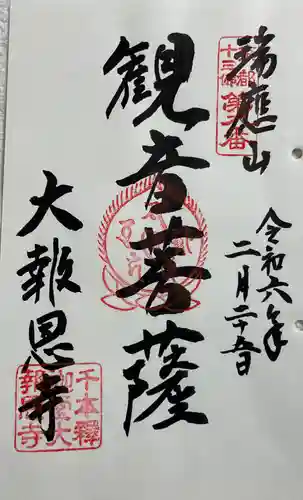 瑞應山
京都十三佛第八番
令和六年
二月二十五日
観音菩薩
大報恩寺
千本釋迦堂大報恩寺